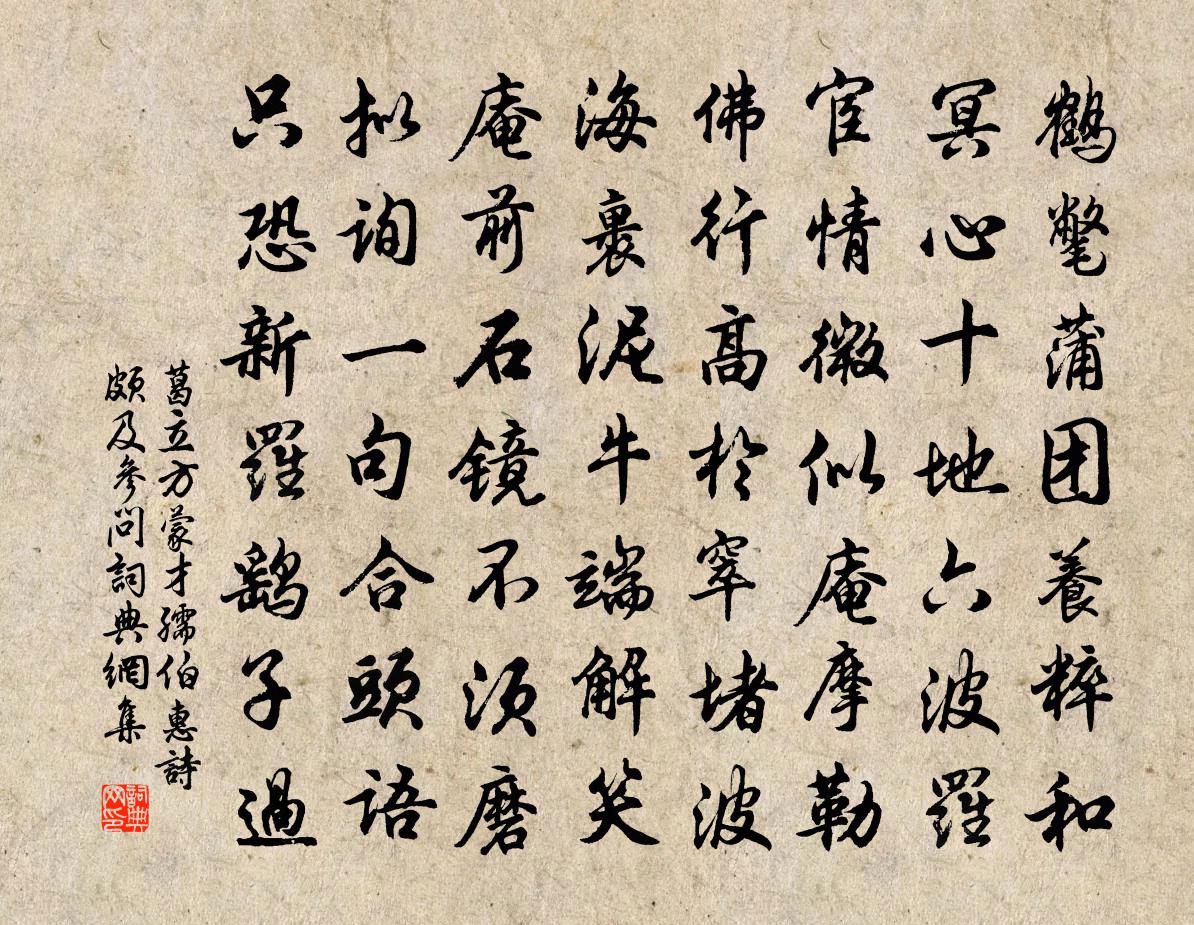 鶴氅蒲团養粹和
冥心十地六波羅
宦情微似庵摩勒
佛行高於窣堵波
海裏泥牛端解笑
庵前石镜不须磨
拟询一句合頭语
只恐新羅鹞子過
葛立方蒙才孺伯惠詩
頗及參问詞典網集
詞典网印